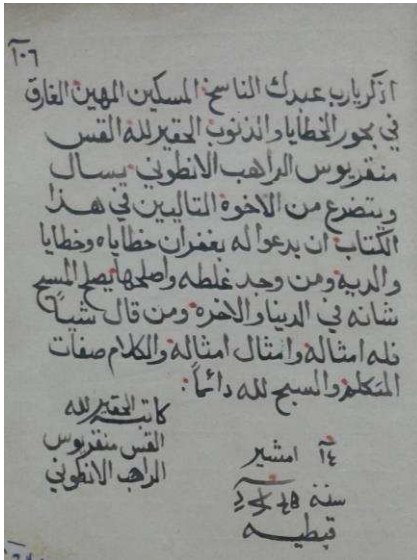 ١٠٦
اذكر يارب عبدك الناسخ المسكين المهين الغارق
في بحور الخطايا والذنوب الحقير لله القس
منقريوس الراهب الانطوني يسال
ويتضرع من الاخوة التاليين في هذا
الكتاب ان يدعوا له بغفران خطاياه وخطايا
والديه ومن وجد غلطه واصلحها يصلح المسيح
شانه في الدينا والاخرة ومن قال شياً
فله امثاله وامثال امثاله والكلام صفات
المتكلم والسبح لله دائماً:
كاتبه الحقير لله
القس منقريوس
الراهب الانطوني
امشير
سنة
قبطيه